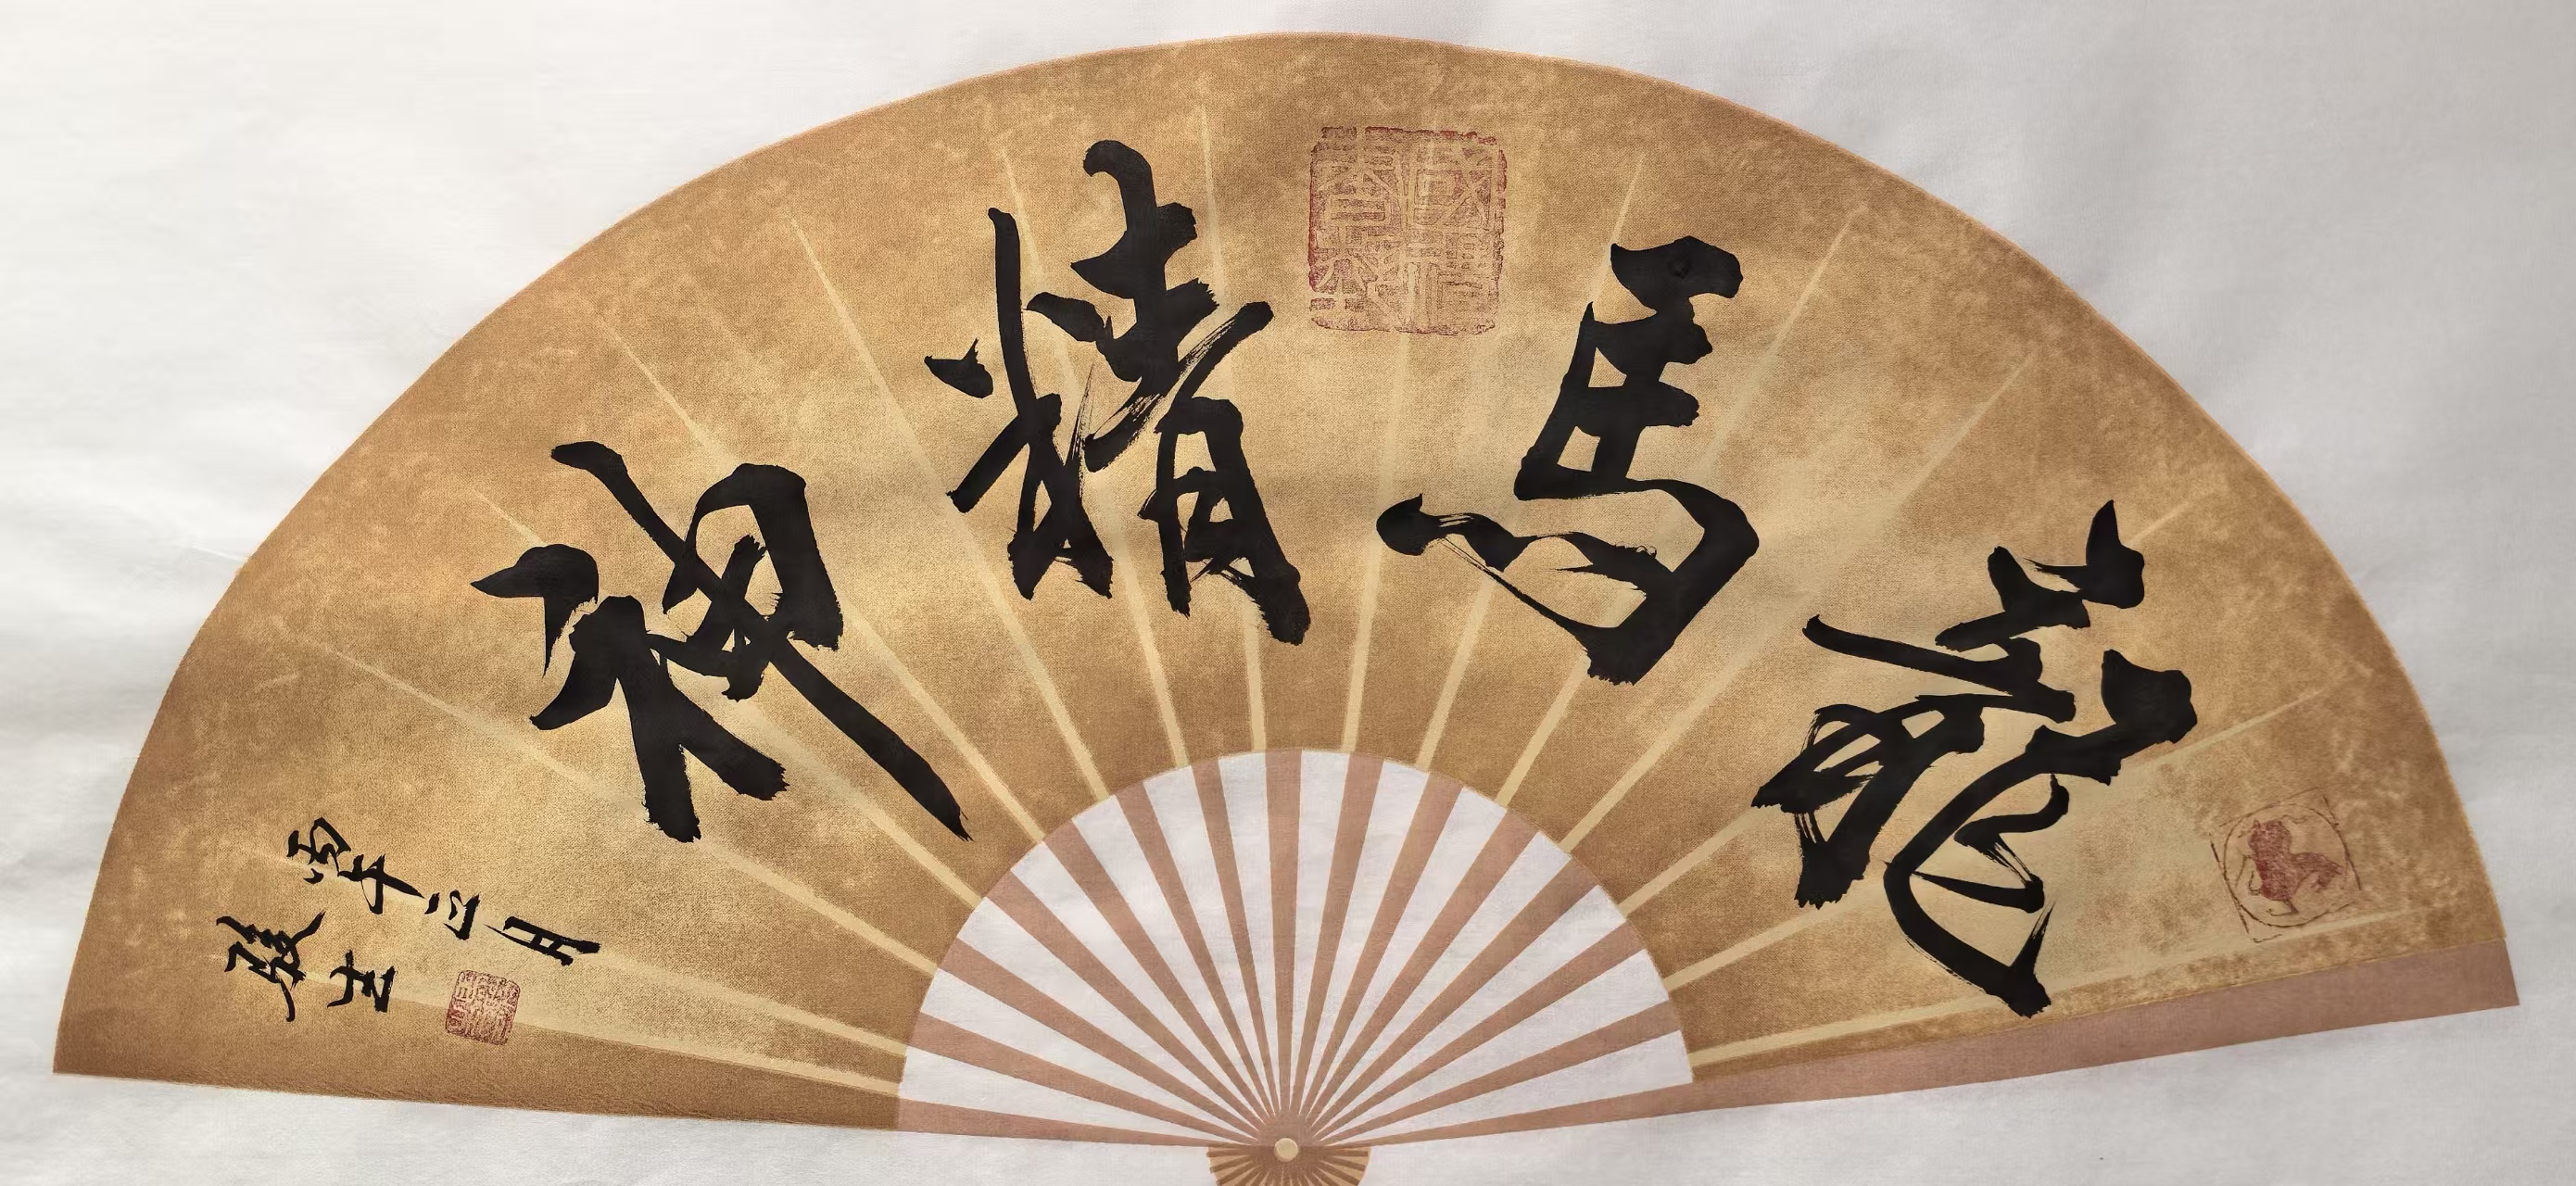 龍馬精神
丙午二月
發生